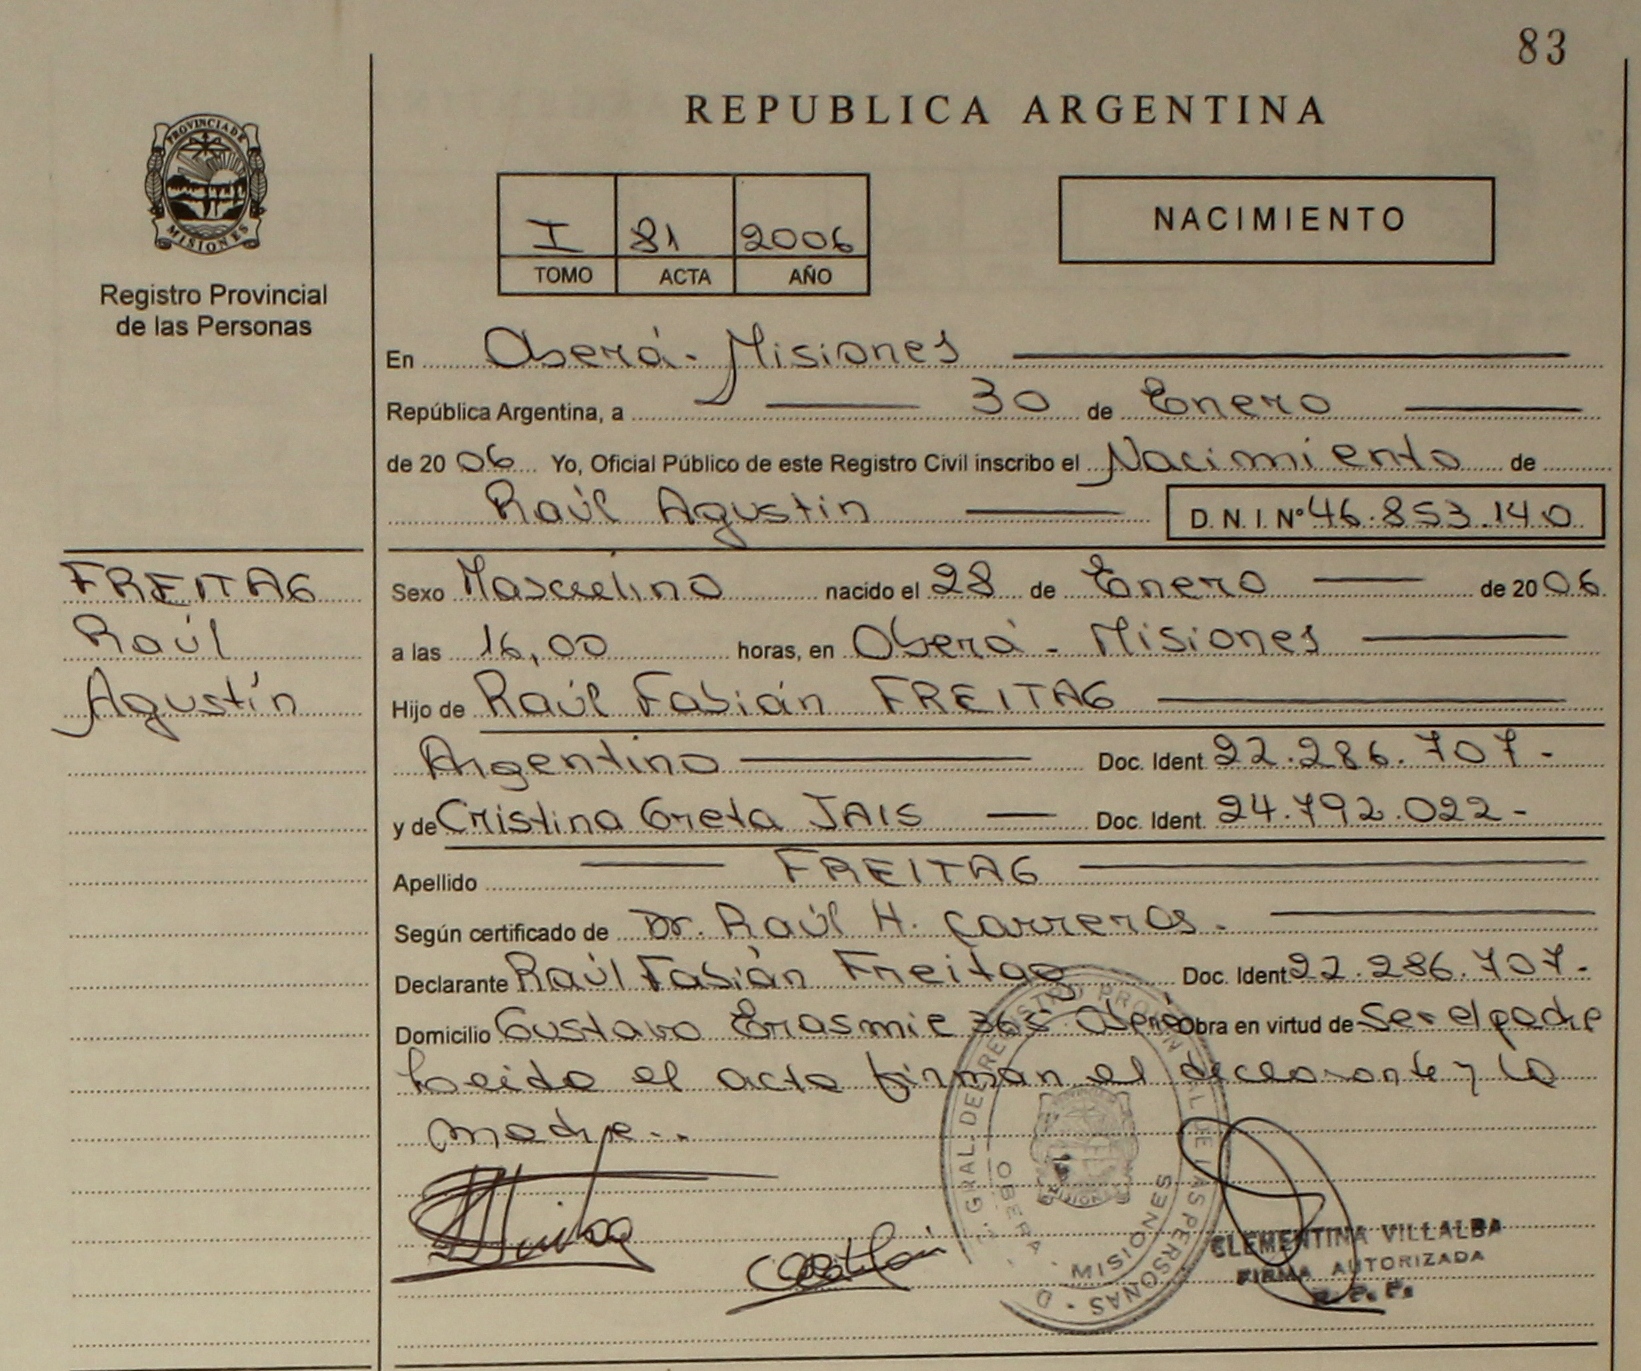 83
REPUBLICA ARGENTINA
PROVINCIA DE
MISIONES
Registro Provincial
de las Personas
I 81 2006
TOMO ACTA AÑO
NACIMIENTO
En Oberá - Misiones
República Argentina, a 30 de Enero
de 2006 Yo, Oficial Público de este Registro Civil inscribo el Nacimiento de
Raúl Agustin D. N. I. Nº 46.853.140
FREITAG
Raúl
Agustín
Sexo Masculino nacido el 28 de Enero de 2006.
a las 16,00 horas, en Oberá - Misiones
Hijo de Raúl Fabián FREITAG
Argentino Doc. Ident. 22.286.707.-
y de Cristina Greta JAIS Doc. Ident. 24.792.022.-
Apellido FREITAG
Según certificado de Dr. Raúl H. Carreros.
Declarante Raúl Fabián Freitag Doc. Ident. 22.286.707.-
Domicilio Gustavo Erasmie Oberá Obra en virtud de Ser el padre
Leida el acta firman el declarante y la
madre..
GRAL. DE REGISTRO PROVINCIAL DE LAS PERSONAS
OBERA
MISIONES
CLEMENTINA VILLALBA
FIRMA AUTORIZADA
R. P. P.